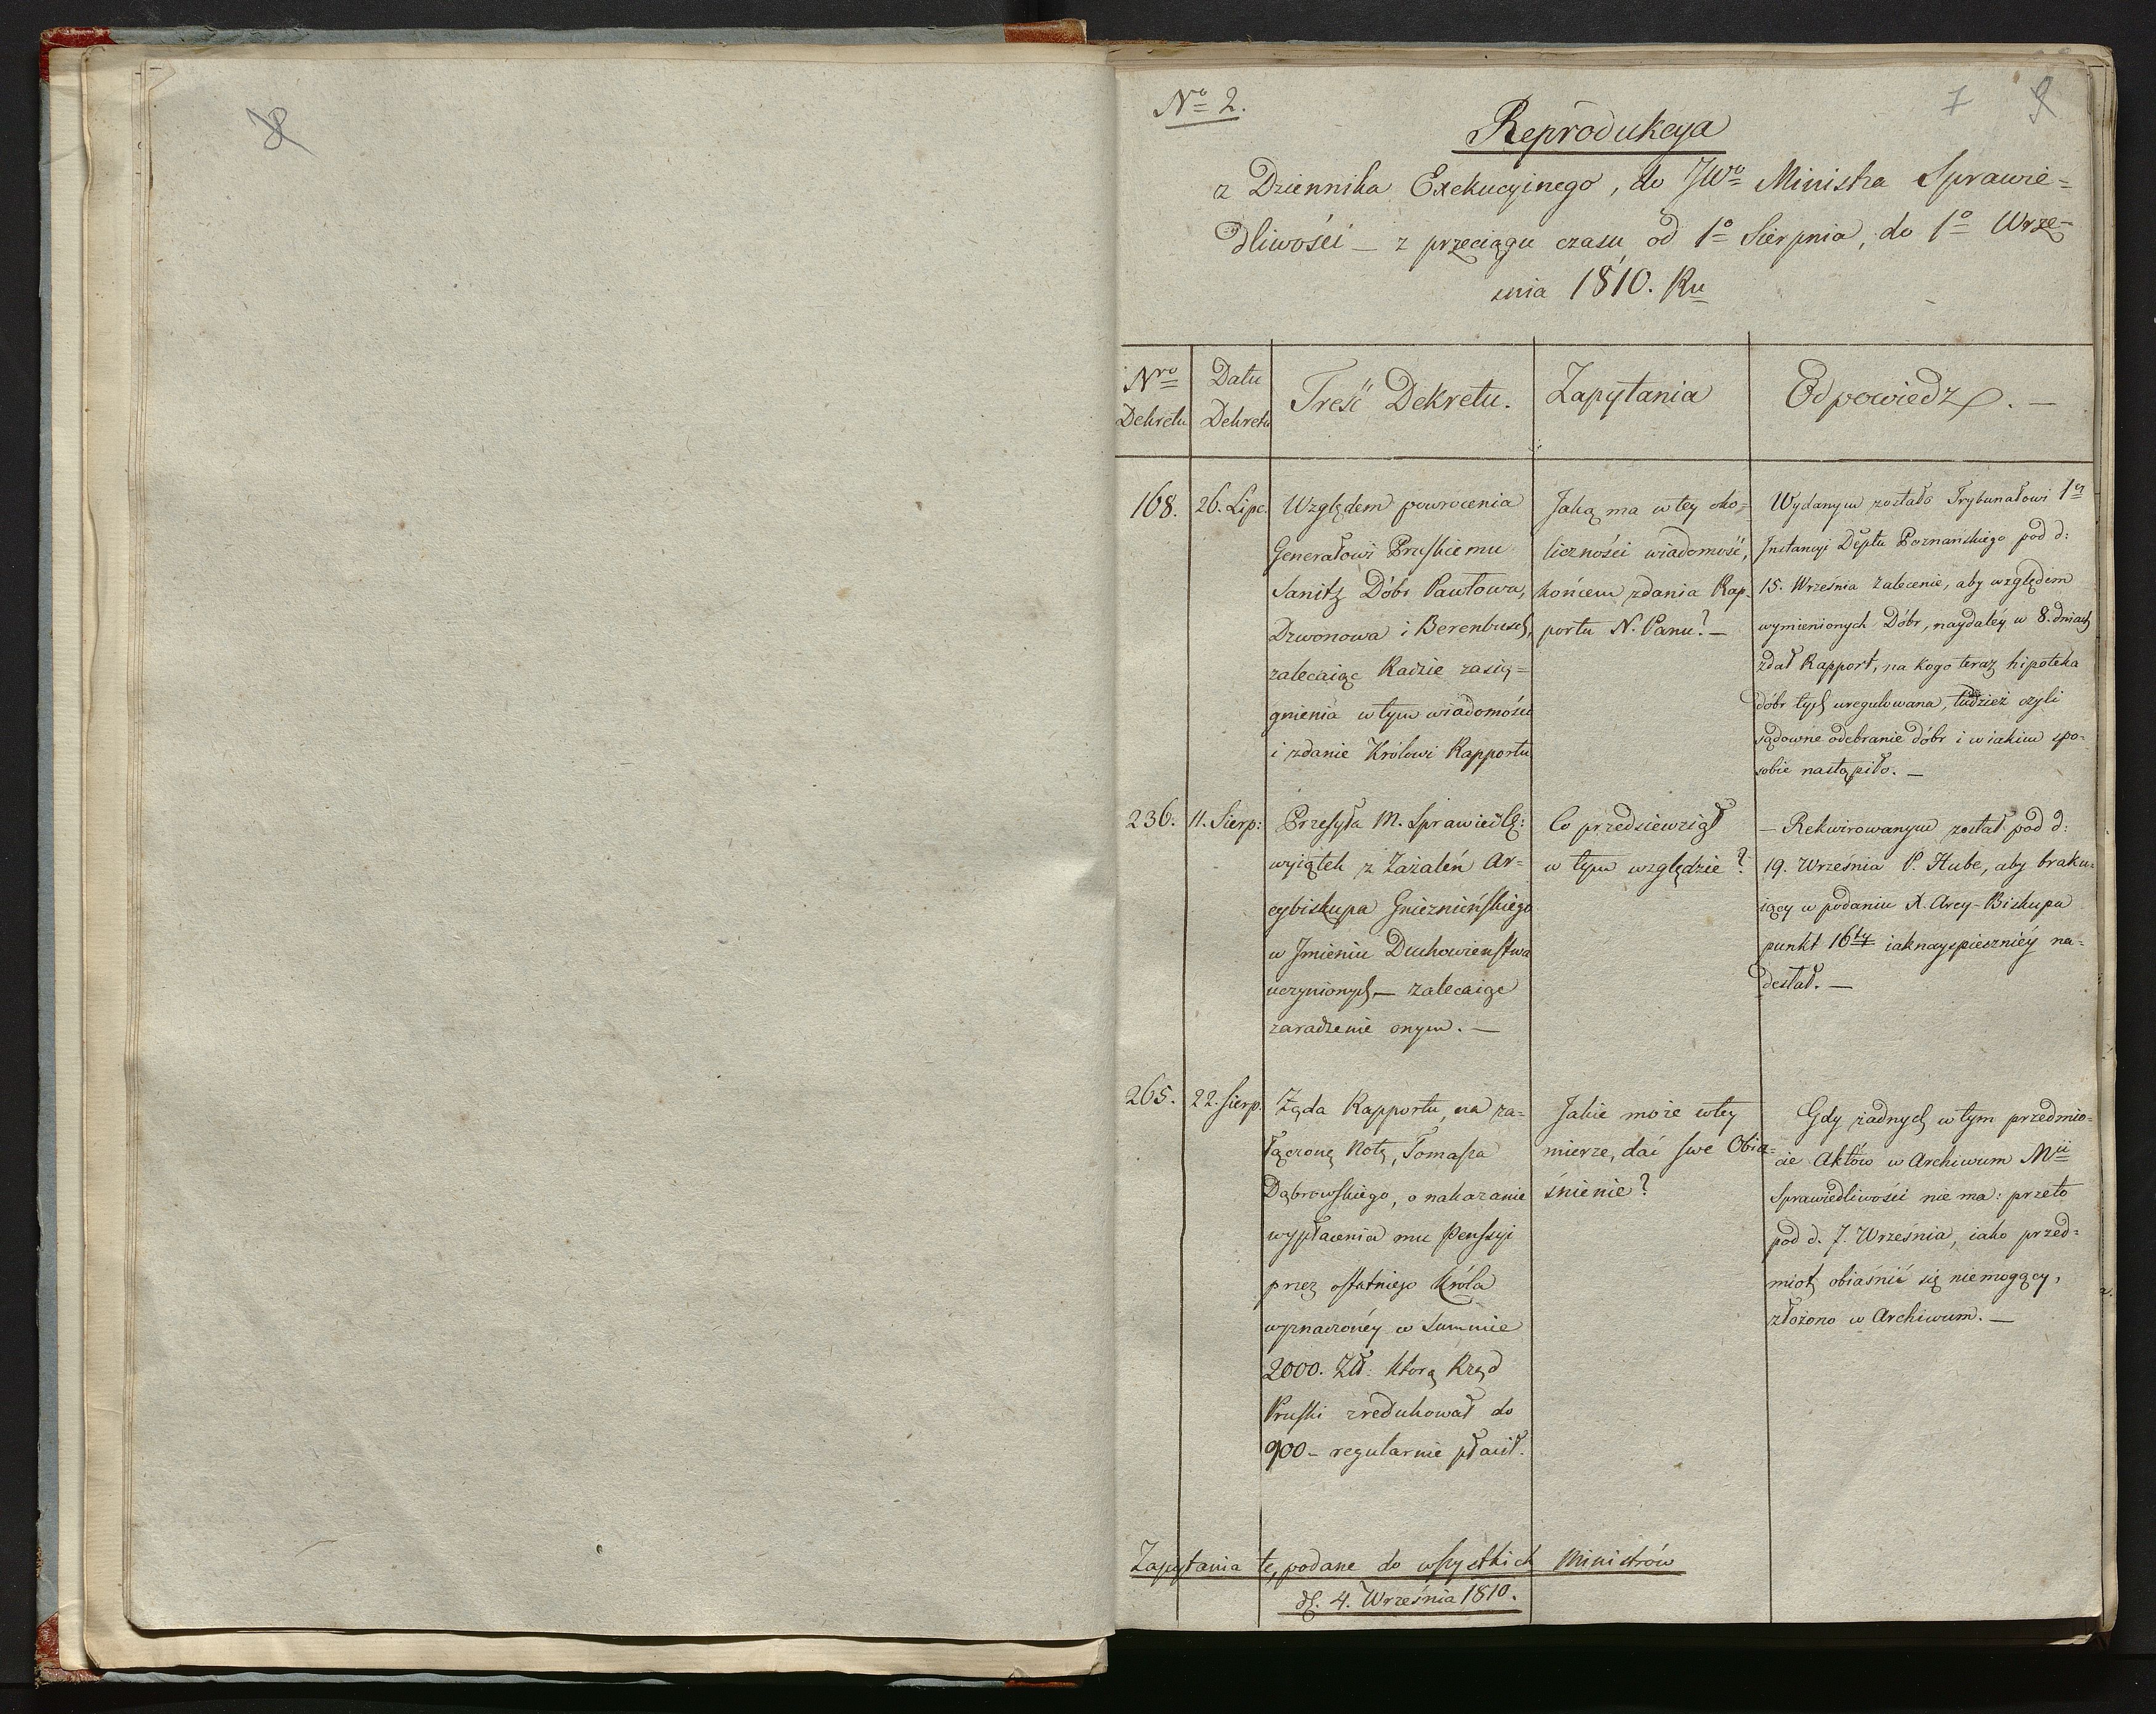 8
No 2.
7 9
Reprodukcya
z Dziennika Exekucyinego, do JWo Ministra Sprawie=
dliwości – z przeciągu czasu od 1o Sierpnia, do 1o Wrze=
śnia 1810. Ru
Nro Dekretu
Datu Dekretu
Treść Dekretu.
Zapytania
Odpowiedz. –
168.
26. Lipc.
Względem powrocenia
Generałowi Pruskiemu
Sanitz Dóbr Pawłowa,
Dzwonowa i Berenbusch,
zalecaiąc Radzie zasią=
gnienia w tym wiadomości
i zdanie Królowi Rapportu
Jaką ma w tey oko=
liczności wiadomość,
końcem zdania Rap-
portu N. Panu? –
Wydanym zostało Trybunałowi 1ey
Instancyi Deptu Poznańskiego pod d:
15. Września zalecenie, aby względem
wymienionych Dóbr, naydaléy w 8. dniach
zdał Rapport, na kogo teraz hipoteka
dóbr tych uregulowana, tudzież czyli
sądowne odebranie dóbr i w iakim spo-
sobie nastąpiło. –
236.
11. Sierp:
Przesyła M. Sprawiedl:
wyiątek z Zażaleń Ar=
cybiskupa Gnieznieńskiego
w Jmieniu Duchowieństwa
uczynionych – zalecaiąc
zaradzenie onym. –
Co przedsiewziął
w tym względzie?
– Rekwirowanym został pod d:
19. Września P. Hube, aby braku-
iący w podaniu X. Arcy-Biskupa
punkt 16ty iaknayspieszniéy na-
desłał. –
265.
22. Sierp.
Żąda Rapportu, na za=
łączoną Notę, Tomasza
Dąbrowskiego, o nakazanie
wypłacenia mu Penssyi
przez ostatniego Króla
wyznaczonéy w Summie
2000. Zł. którą Rząd
Pruski zredukował do
900 – regularnie płacił.
Jakie może w tey
mierze, dać swe Obia=
śnienie?
Gdy żadnych w tym przedmio=
cie Aktów w Archiwum Mii
Sprawiedliwości nie ma: przeto
pod d. 7. Września, iako przed=
miot obiaśnić się niemogący,
złożono w Archiwum. –
Zapytania te, podane do wszystkich Ministrów
d. 4. Września 1810.